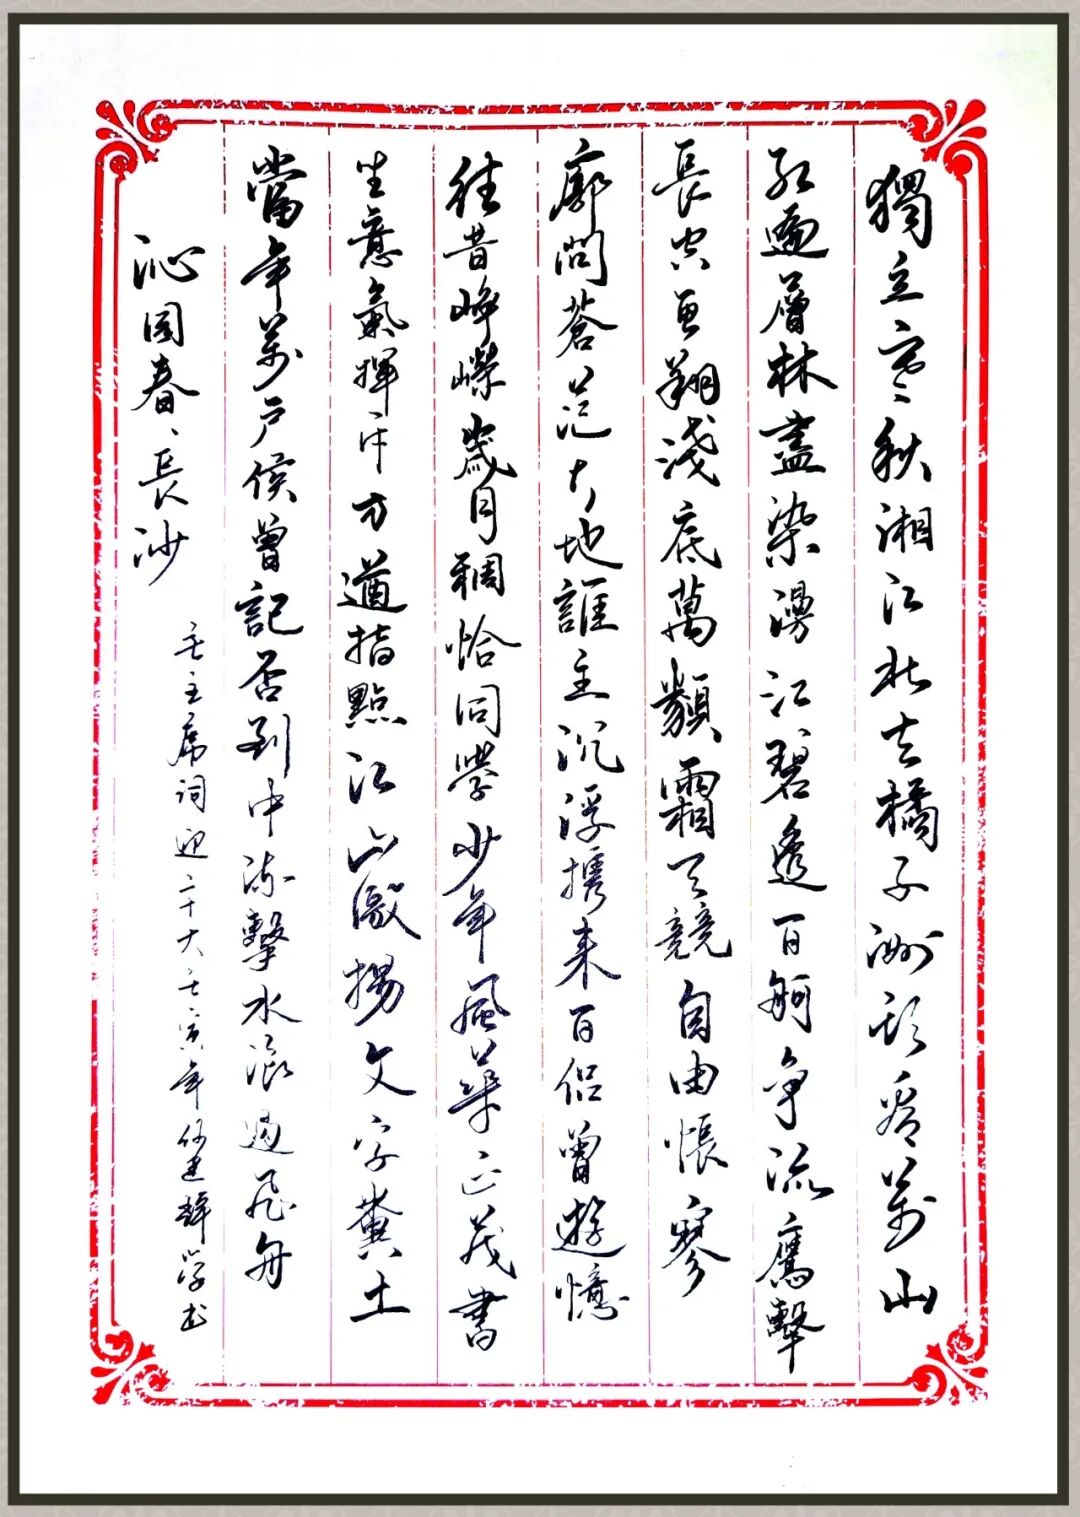 獨立寒秋湘江北去橘子洲頭看萬山
紅遍層林盡染漫江碧透百舸争流鷹擊
長空魚翔淺底萬類霜天競自由悵寥
廓問蒼茫大地誰主沉浮携来百侣曾遊憶
往昔崢嶸歲月稠恰同學少年風華正茂書
生意氣揮斥方遒指點江山激揚文字糞土
當年萬户侯曾記否到中流擊水浪遏飛舟
沁園春、長沙
毛主席词迎二十大壬寅年建輝学书